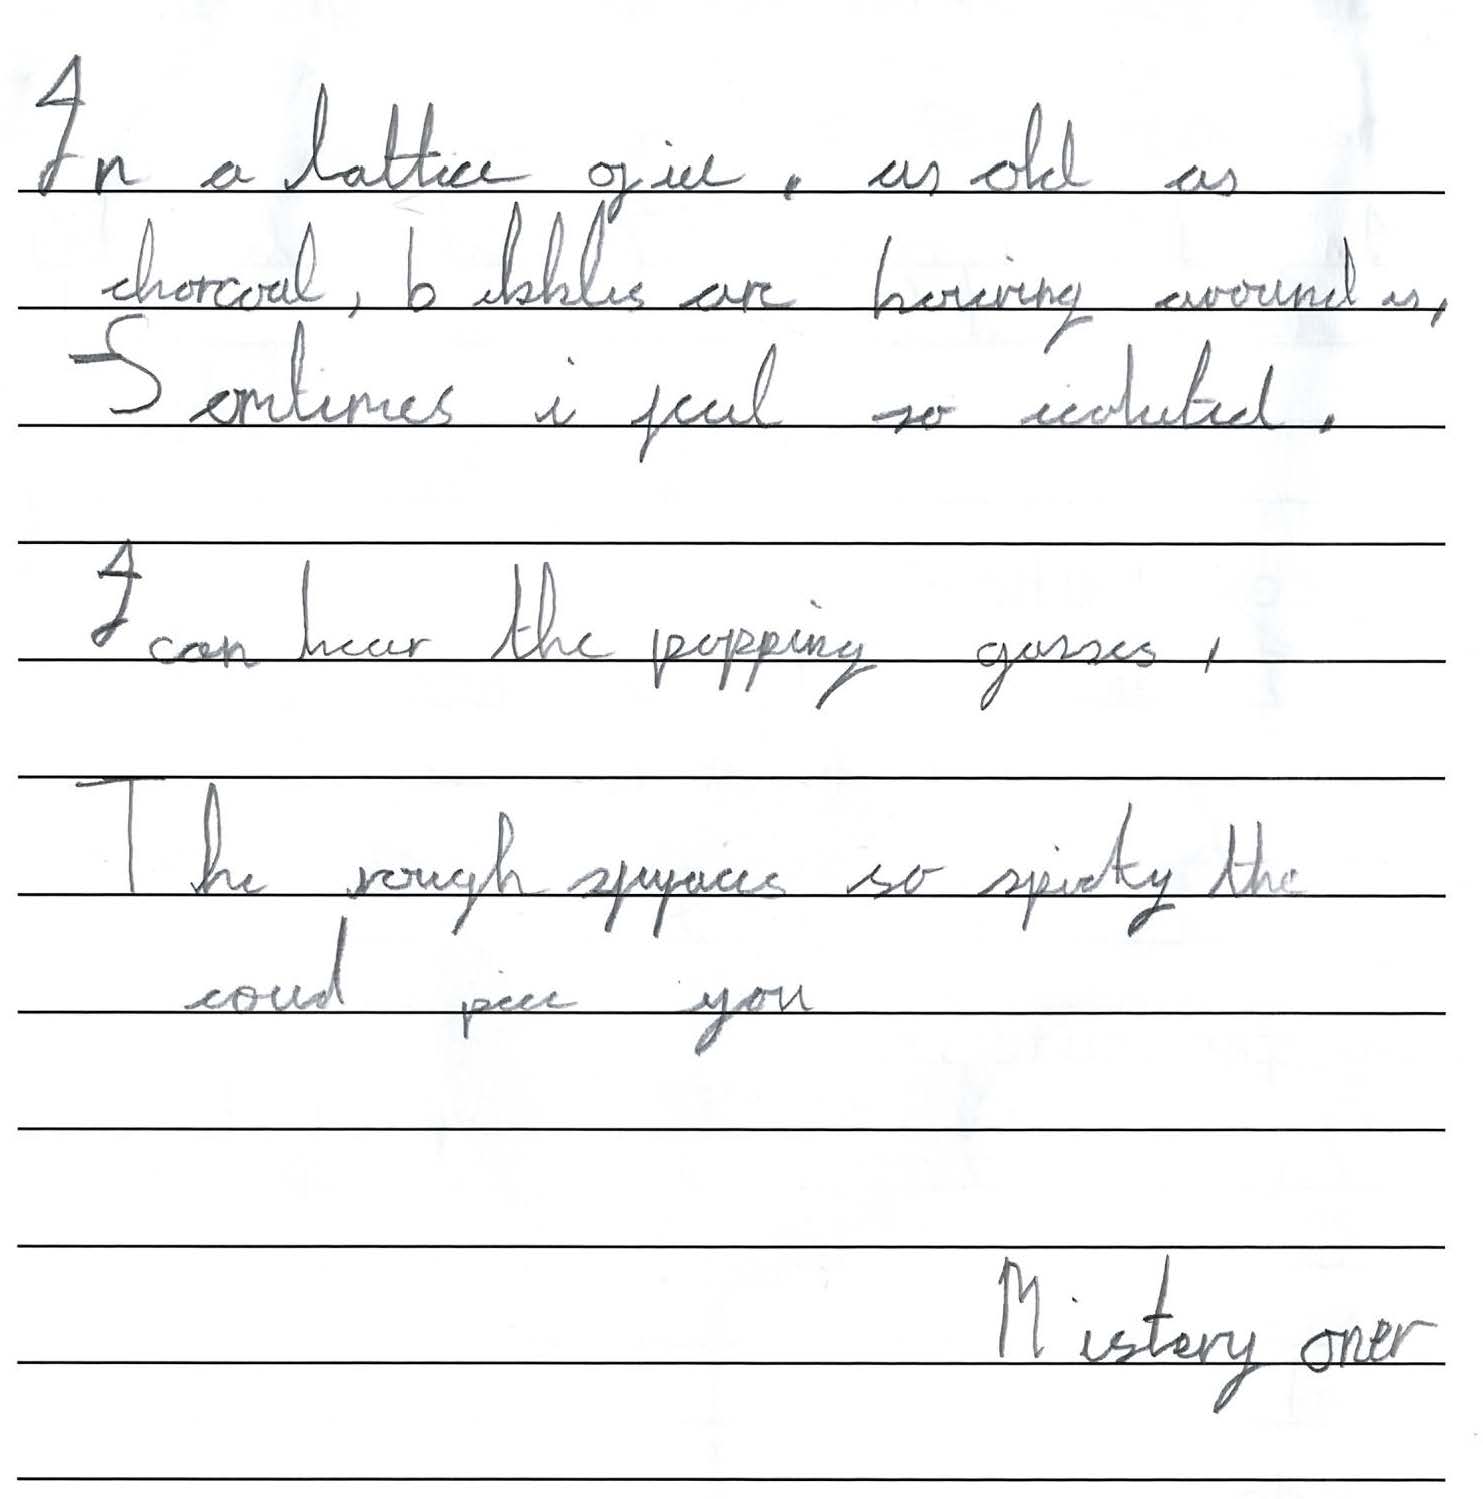 In a lattice of ice, as old as
chorcoal, bubbles are hovering around us,
Somtimes i feel so isolated.
I can hear the popping gasses,
The rough spyaces so spicky the
coud pice you
Mistery oner